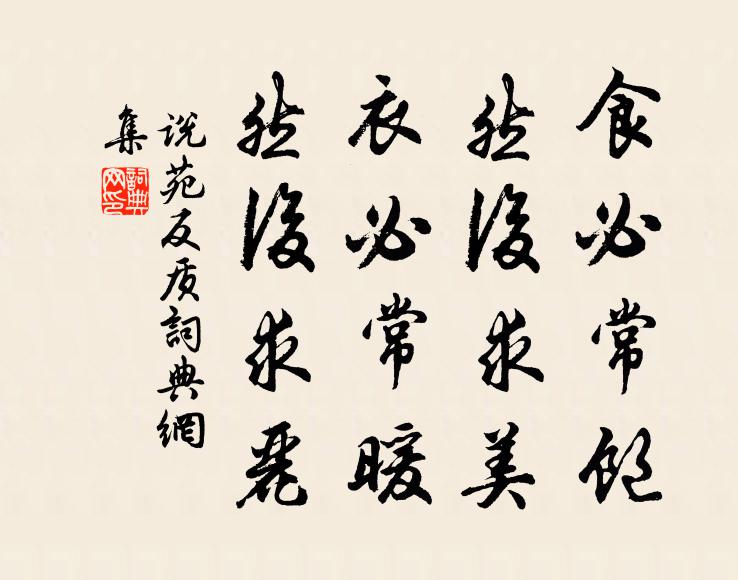 食必常飽
然後求美
衣必常暖
然後求麗
说苑反质詞典網
集
詞典
网印